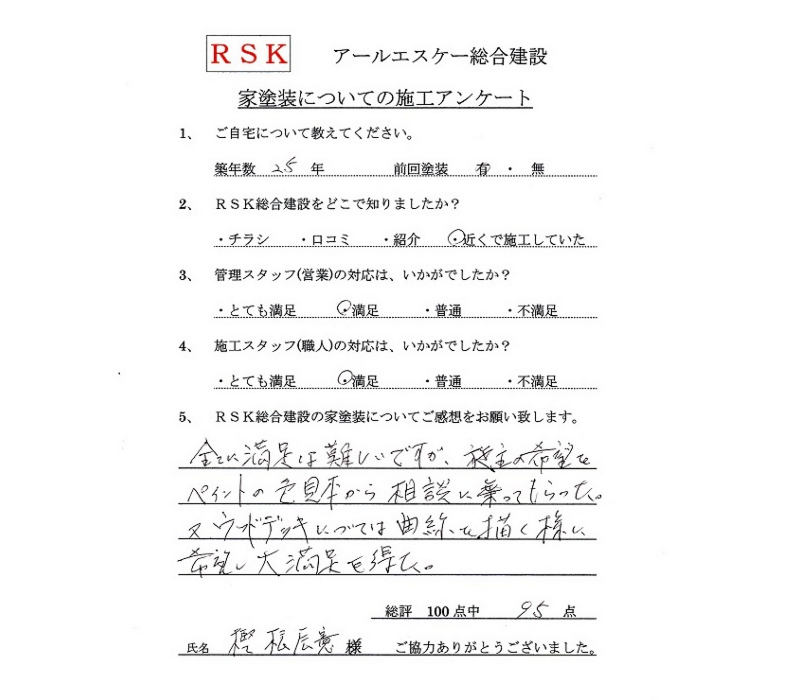 RSK アールエスケー総合建設
家塗装についての施工アンケート
1、 ご自宅について教えてください。
築年数 25 年 前回塗装 有 ・ 無
2、 RSK総合建設をどこで知りましたか？
・チラシ ・口コミ ・紹介 ・近くで施工していた
3、 管理スタッフ(営業)の対応は、いかがでしたか？
・とても満足 ・満足 ・普通 ・不満足
4、 施工スタッフ(職人)の対応は、いかがでしたか？
・とても満足 ・満足 ・普通 ・不満足
5、 RSK総合建設の家塗装についてご感想をお願い致します。
全てに満足は難しいですが、施主の希望を
ペイントの色見本から相談に乗ってもらった。
又ウッドデッキについては曲線を描く様に
希望し大満足を得た。
総評 100点中 95 点
氏名 様 ご協力ありがとうございました。